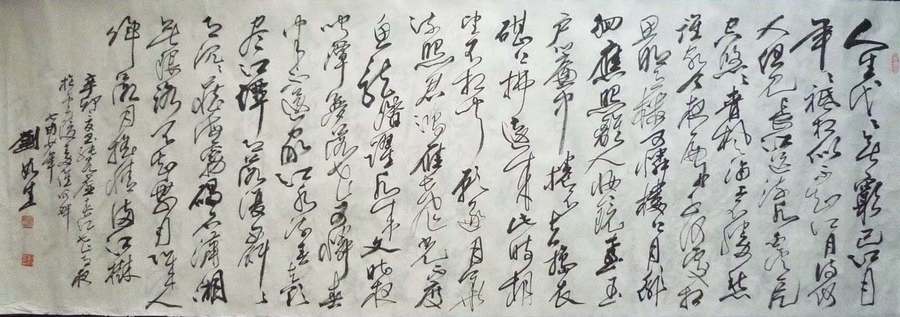 人生代々無窮已江月
年々祗相似不知江月待何
人但見長江送流水白雲一片
去悠々青楓浦上不勝愁
誰家今夜扁舟子何處相
思明月樓可憐樓上月徘
徊應照離人妝鏡臺玉
戶簾中捲不去擣衣
砧上拂還來此時相
望不相聞願逐月華
流照君鴻雁長飛光不度
魚龍潛躍水成文昨夜
閑潭夢落花可憐春
半不還家江水流春去欲
盡江潭落月復西斜々
月沉々藏海霧碣石瀟湘
無限路不知乘月幾人
歸落月搖情滿江樹
辛卯夏書張若虛春江花月夜
劉生